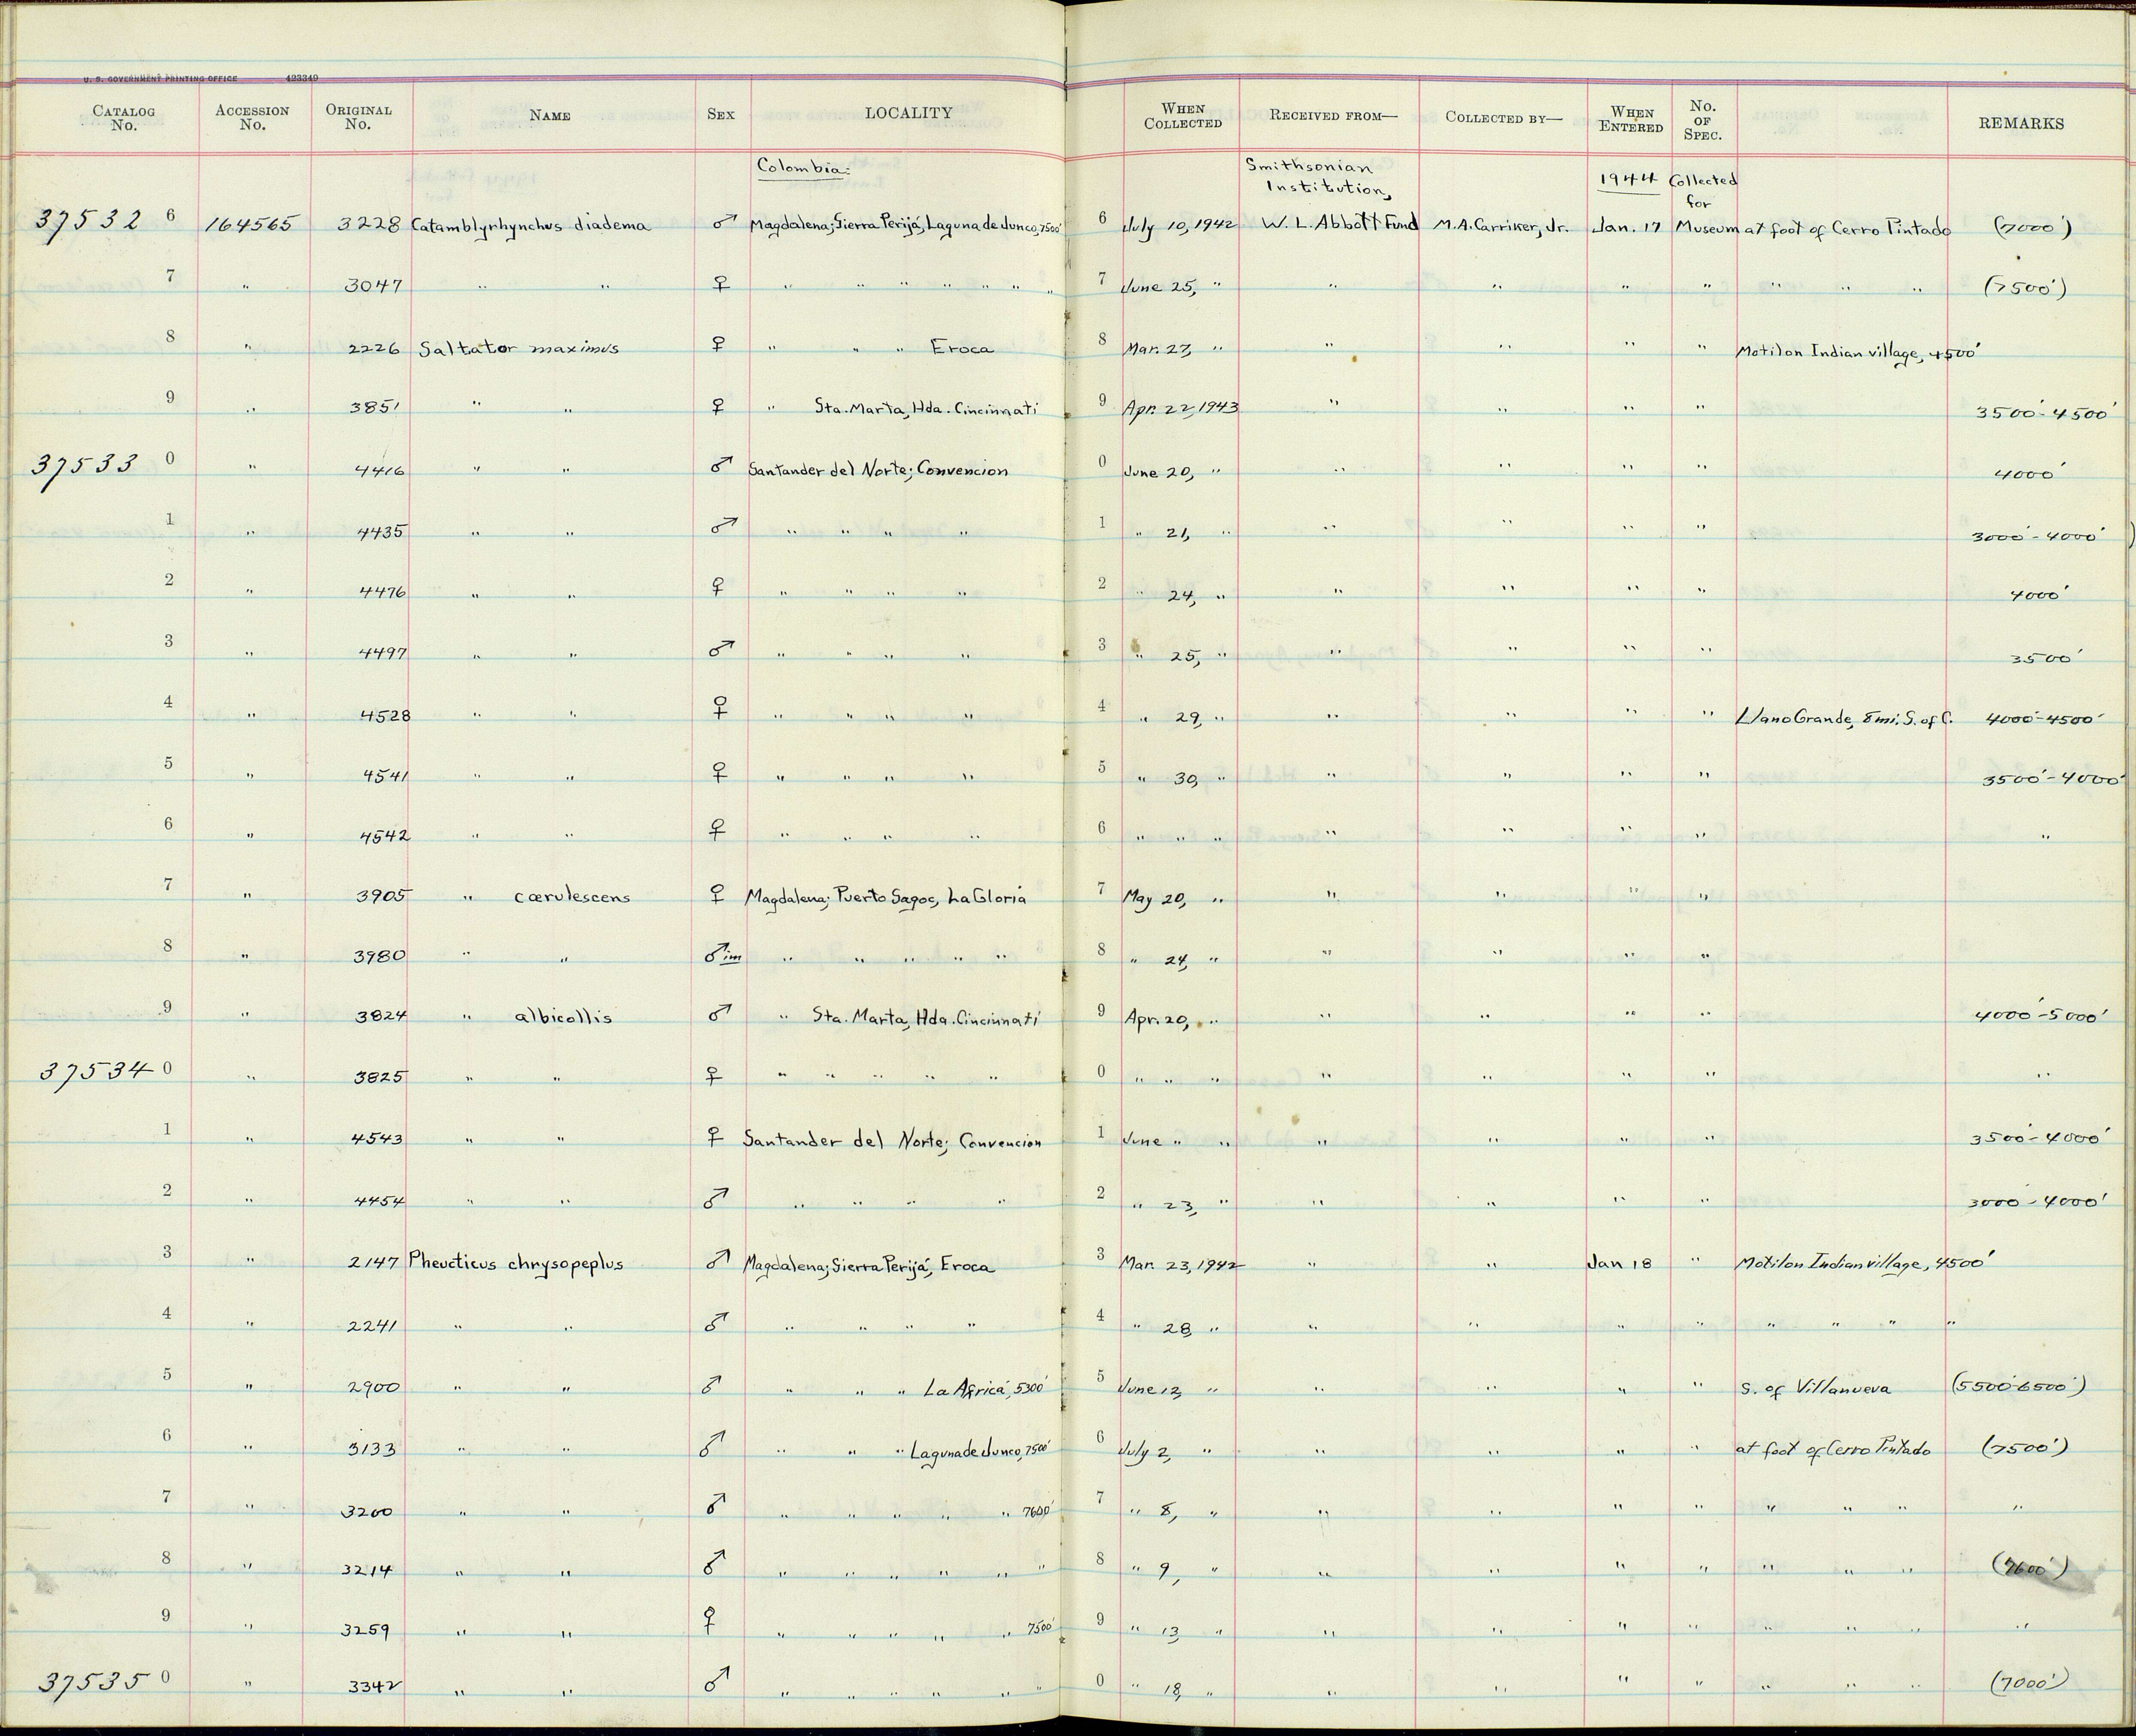 U. S. GOVERNMENT PRINTING OFFICE 423349
CATALOG No. ACCESSION No. ORIGINAL No. NAME SEX LOCALITY WHEN COLLECTED RECEIVED FROM— COLLECTED BY— WHEN ENTERED No. OF SPEC. REMARKS
Colombia: Smithsonian Institution, 1944 Collected for
37532 6 164565 3228 Catamblyrhynchus diadema ♂ Magdalena; Sierra Perijá, Laguna de Junco, 7500' 6 July 10, 1942 W. L. Abbott Fund M. A. Carriker, Jr. Jan. 17 Museum at foot of Cerro Pintado (7000')
7 " 3047 " " ♀ " " " " " " " 7 June 25, " " " " " " " " (7500')
8 " 2226 Saltator maximus ♀ " " " Eroca 8 Mar. 27, " " " " " Motilon Indian village, 4500'
9 " 3851 " " ♀ " Sta. Marta, Hda. Cincinnati 9 Apr. 22, 1943 " " " " 3500'-4500'
37533 0 " 4416 " " ♂ Santander del Norte; Convencion 0 June 20, " " " " " 4000'
1 " 4435 " " ♂ " " " " 1 " 21, " " " " " 3000'-4000'
2 " 4476 " " ♀ " " " " 2 " 24, " " " " " 4000'
3 " 4497 " " ♂ " " " " 3 " 25, " " " " " 3500'
4 " 4528 " " ♀ " " " " 4 " 29, " " " " " Llano Grande, 8 mi. S. of C. 4000'-4500'
5 " 4541 " " ♀ " " " " 5 " 30, " " " " " 3500'-4000'
6 " 4542 " " ♀ " " " " 6 " " " " " " " "
7 " 3905 " cærulescens ♀ Magdalena; Puerto Sagoc, La Gloria 7 May 20, " " " " "
8 " 3980 " " ♂ im " " " " " 8 " 24, " " " " "
9 " 3824 " albicollis ♂ " Sta. Marta, Hda. Cincinnati 9 Apr. 20, " " " " " 4000'-5000'
37534 0 " 3825 " " ♀ " " " " " 0 " " " " " " " "
1 " 4543 " " ♀ Santander del Norte; Convencion 1 June " " " " " " 3500'-4000'
2 " 4454 " " ♂ " " " " 2 " 23, " " " " " 3000'-4000'
3 " 2147 Pheucticus chrysopeplus ♂ Magdalena; Sierra Perijá, Eroca 3 Mar. 23, 1942 " " Jan 18 " Motilon Indian village, 4500'
4 " 2241 " " ♂ " " " " 4 " 28, " " " " " " " " "
5 " 2900 " " ♂ " " " La Africa, 5300' 5 June 12, " " " " " S. of Villanueva (5500'-6500')
6 " 3133 " " ♂ " " " Laguna de Junco, 7500' 6 July 2, " " " " " at foot of Cerro Pintado (7500')
7 " 3200 " " ♂ " " " " " 7600' 7 " 8, " " " " " " " " "
8 " 3214 " " ♂ " " " " " " 8 " 9, " " " " " " " " (7600')
9 " 3259 " " ♀ " " " " " 7500' 9 " 13, " " " " " " " " "
37535 0 " 3342 " " ♂ " " " " " " 0 " 18, " " " " " " " " (7000')